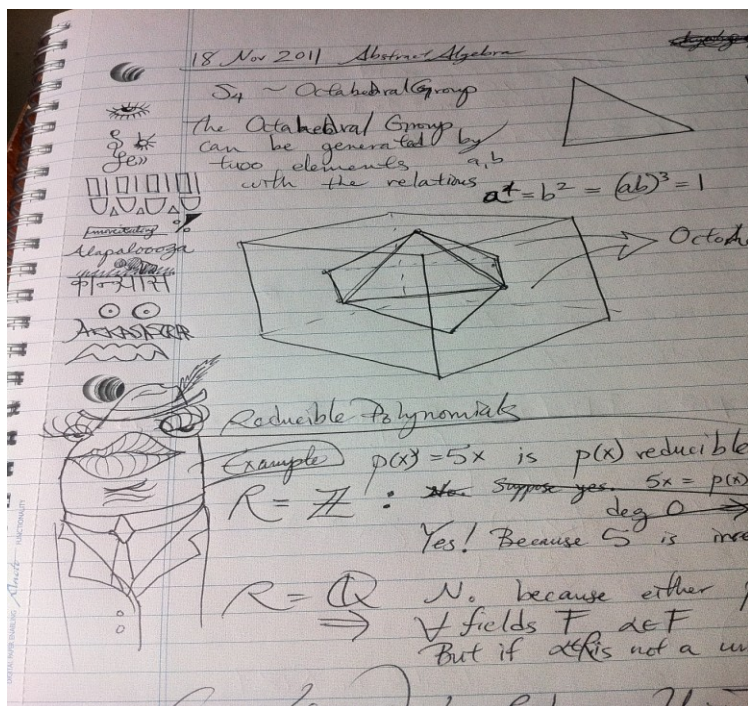 18 Nov 2011 Abstract Algebra
S4 ~ Octahedral Group
The Octahedral Group
can be generated by
two elements a, b
with the relations a⁴ = b² = (ab)³ = 1
Octah
Reducible Polynomials
Example p(x) = 5x is p(x) reducible
R = ℤ : No. Suppose yes. 5x = p(x)
deg 0 ⇒
Yes! Because 5 is
R = ℚ No because either
⇒ ∀ fields F α∈F
But if α∈R is not a